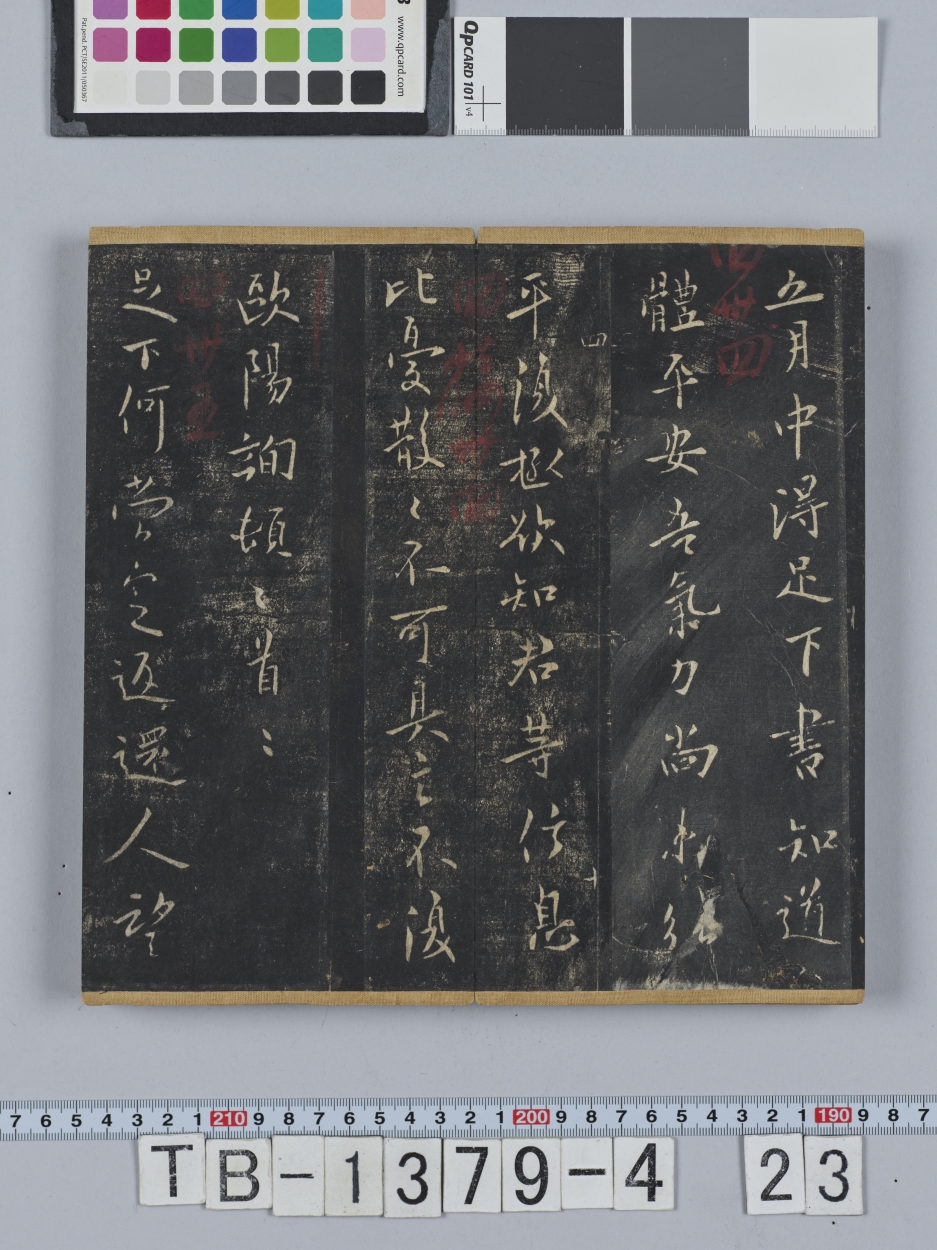 www.qpcard.com
Pat.pend. PCT/SE2011/050367
QPCARD 101 v4
五月中得足下書知道
體平安吾氣力尚
四
平復極欲知君等信息
比憂散〻不可具言不復
歐陽詢頓〻首〻
足下何當定返還人望
7 6 5 4 3 2 1 210 9 8 7 6 5 4 3 2 1 200 9 8 7 6 5 4 3 2 1 190 9 8 7
TB-1379-4 23